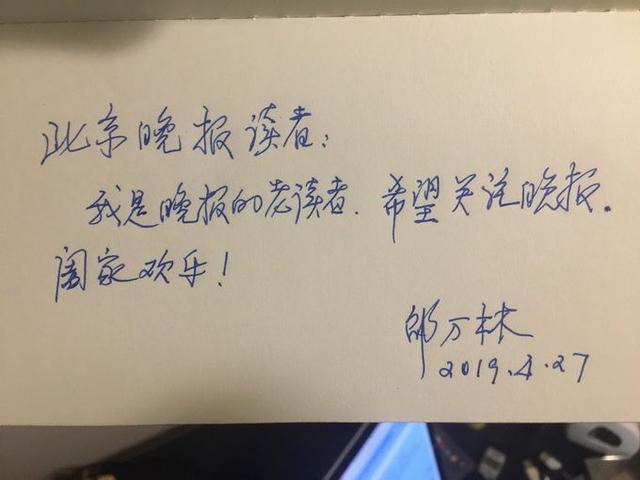 北京晚报读者：
我是晚报的老读者.希望关注晚报.
阖家欢乐！
邹万林
2019.4.27